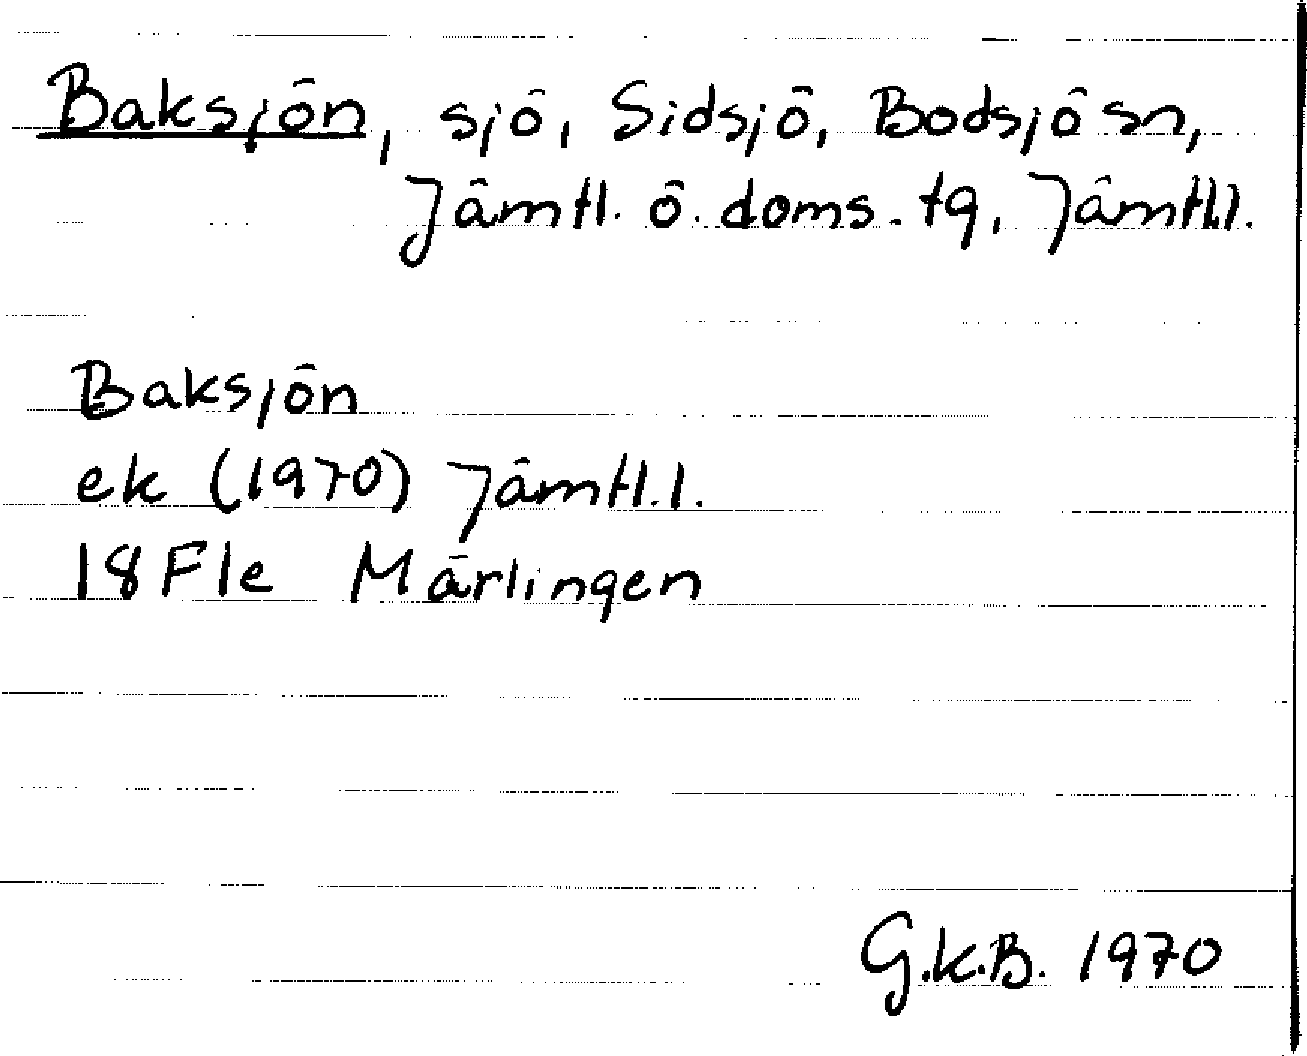 Baksjön, sjö, Sidsjö, Bodsjö sn,
Jämtl. ö. doms. tg, Jämtl.l.
Baksjön
ek (1970) Jämtl.l.
18Fle Märlingen
G.K.B. 1970